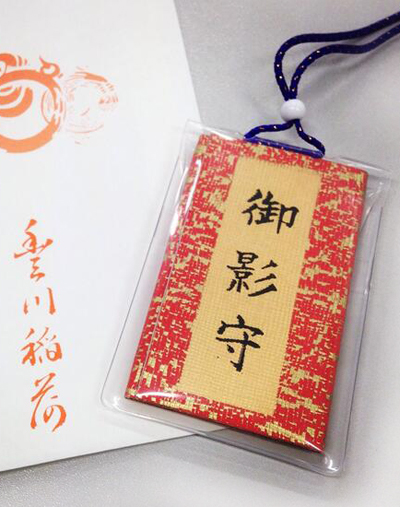 御影守
豊川稲荷